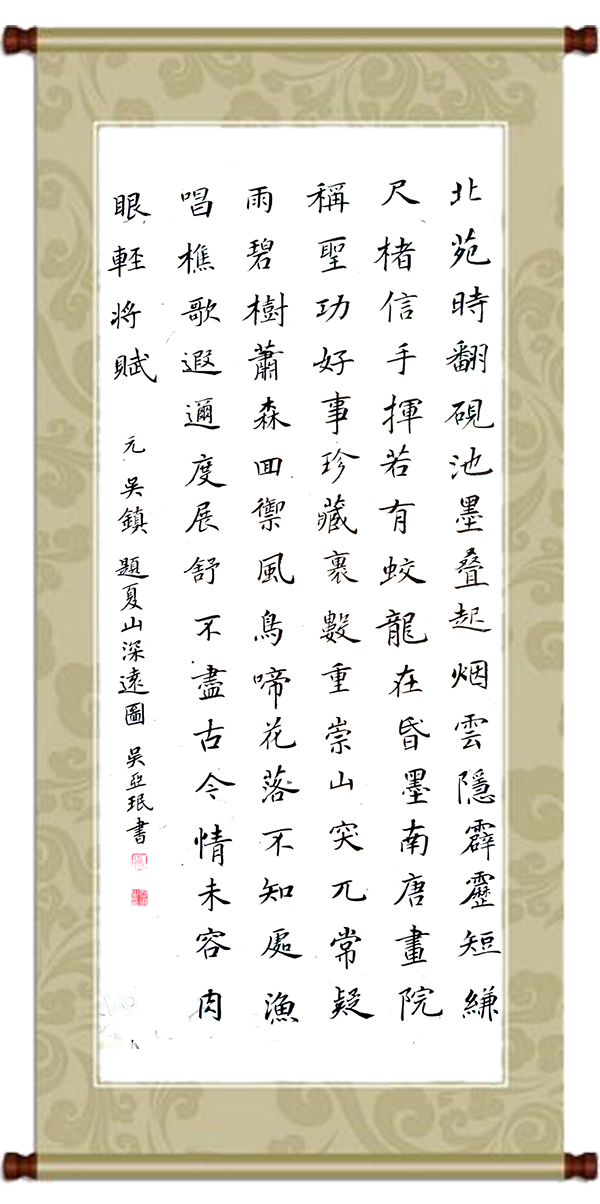 北苑時翻硯池墨叠起烟雲隱霹靂短縑
尺楮信手揮若有蛟龍在昏墨南唐畫院
稱聖功好事珍藏裹數重崇山突兀常疑
雨碧樹蕭森囬禦風鳥啼花落不知處漁
唱樵歌遐邇度展舒不盡古今情未容肉
眼軽将賦 元 吳鎮 題夏山深遠圖 吳亞珉書